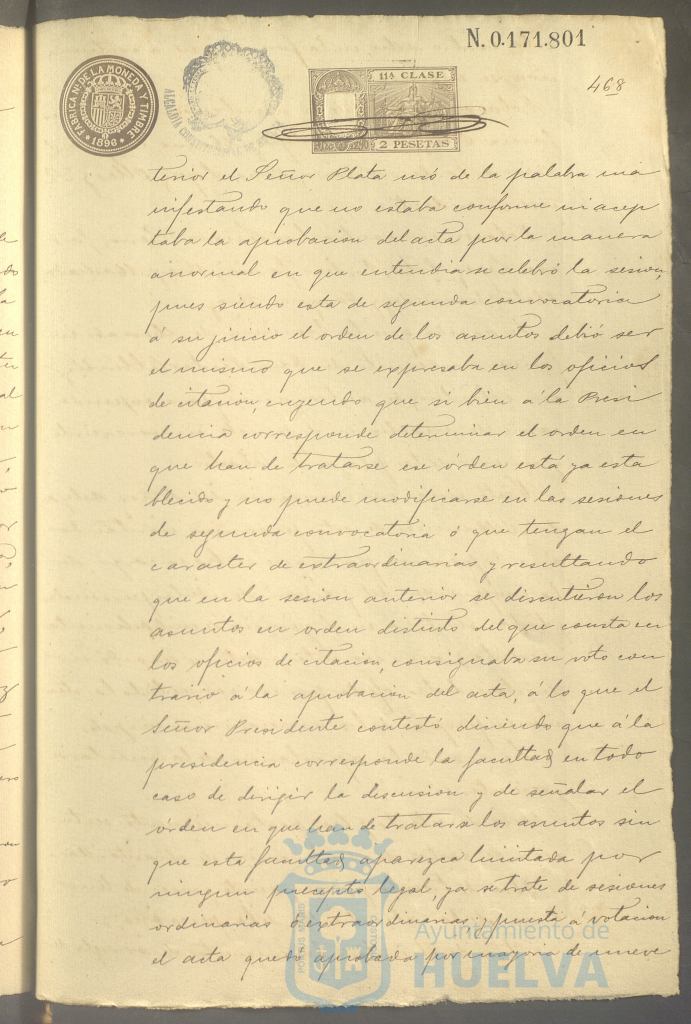 N. 0.171.801
468
FABRICA Nal DE LA MONEDA Y TIMBRE
1896
ALCALDIA
11ª CLASE
2 PESETAS
terior el Señor Plata usó de la palabra ma
nifestando que no estaba conforme ni acep
taba la aprobacion del acta por la manera
anormal en que entendia se celebró la sesion,
pues siendo esta de segunda convocatoria
á su juicio el orden de los asuntos debió ser
el mismo que se expresaba en los oficios
de citacion, creyendo que si bien á la Presi
dencia corresponde determinar el orden en
que han de tratarse ese órden está ya esta
blecido y no puede modificarse en las sesiones
de segunda convocatoria ó que tengan el
caracter de extraordinarias y resultando
que en la sesion anterior se discutieron los
asuntos en orden distinto del que consta en
los oficios de citacion, consignaba su voto con
trario á la aprobacion del acta, á lo que el
Señor Presidente contestó diciendo que á la
presidencia corresponde la facultad en todo
caso de dirigir la discusion y de señalar el
órden en que han de tratarse los asuntos sin
que esta facultad aparezca limitada por
ningun precepto legal, ya se trate de sesiones
ordinarias ó extraordinarias; y puesta á votacion
el acta quedó aprobada por mayoria de nueve
Ayuntamiento de
HUELVA